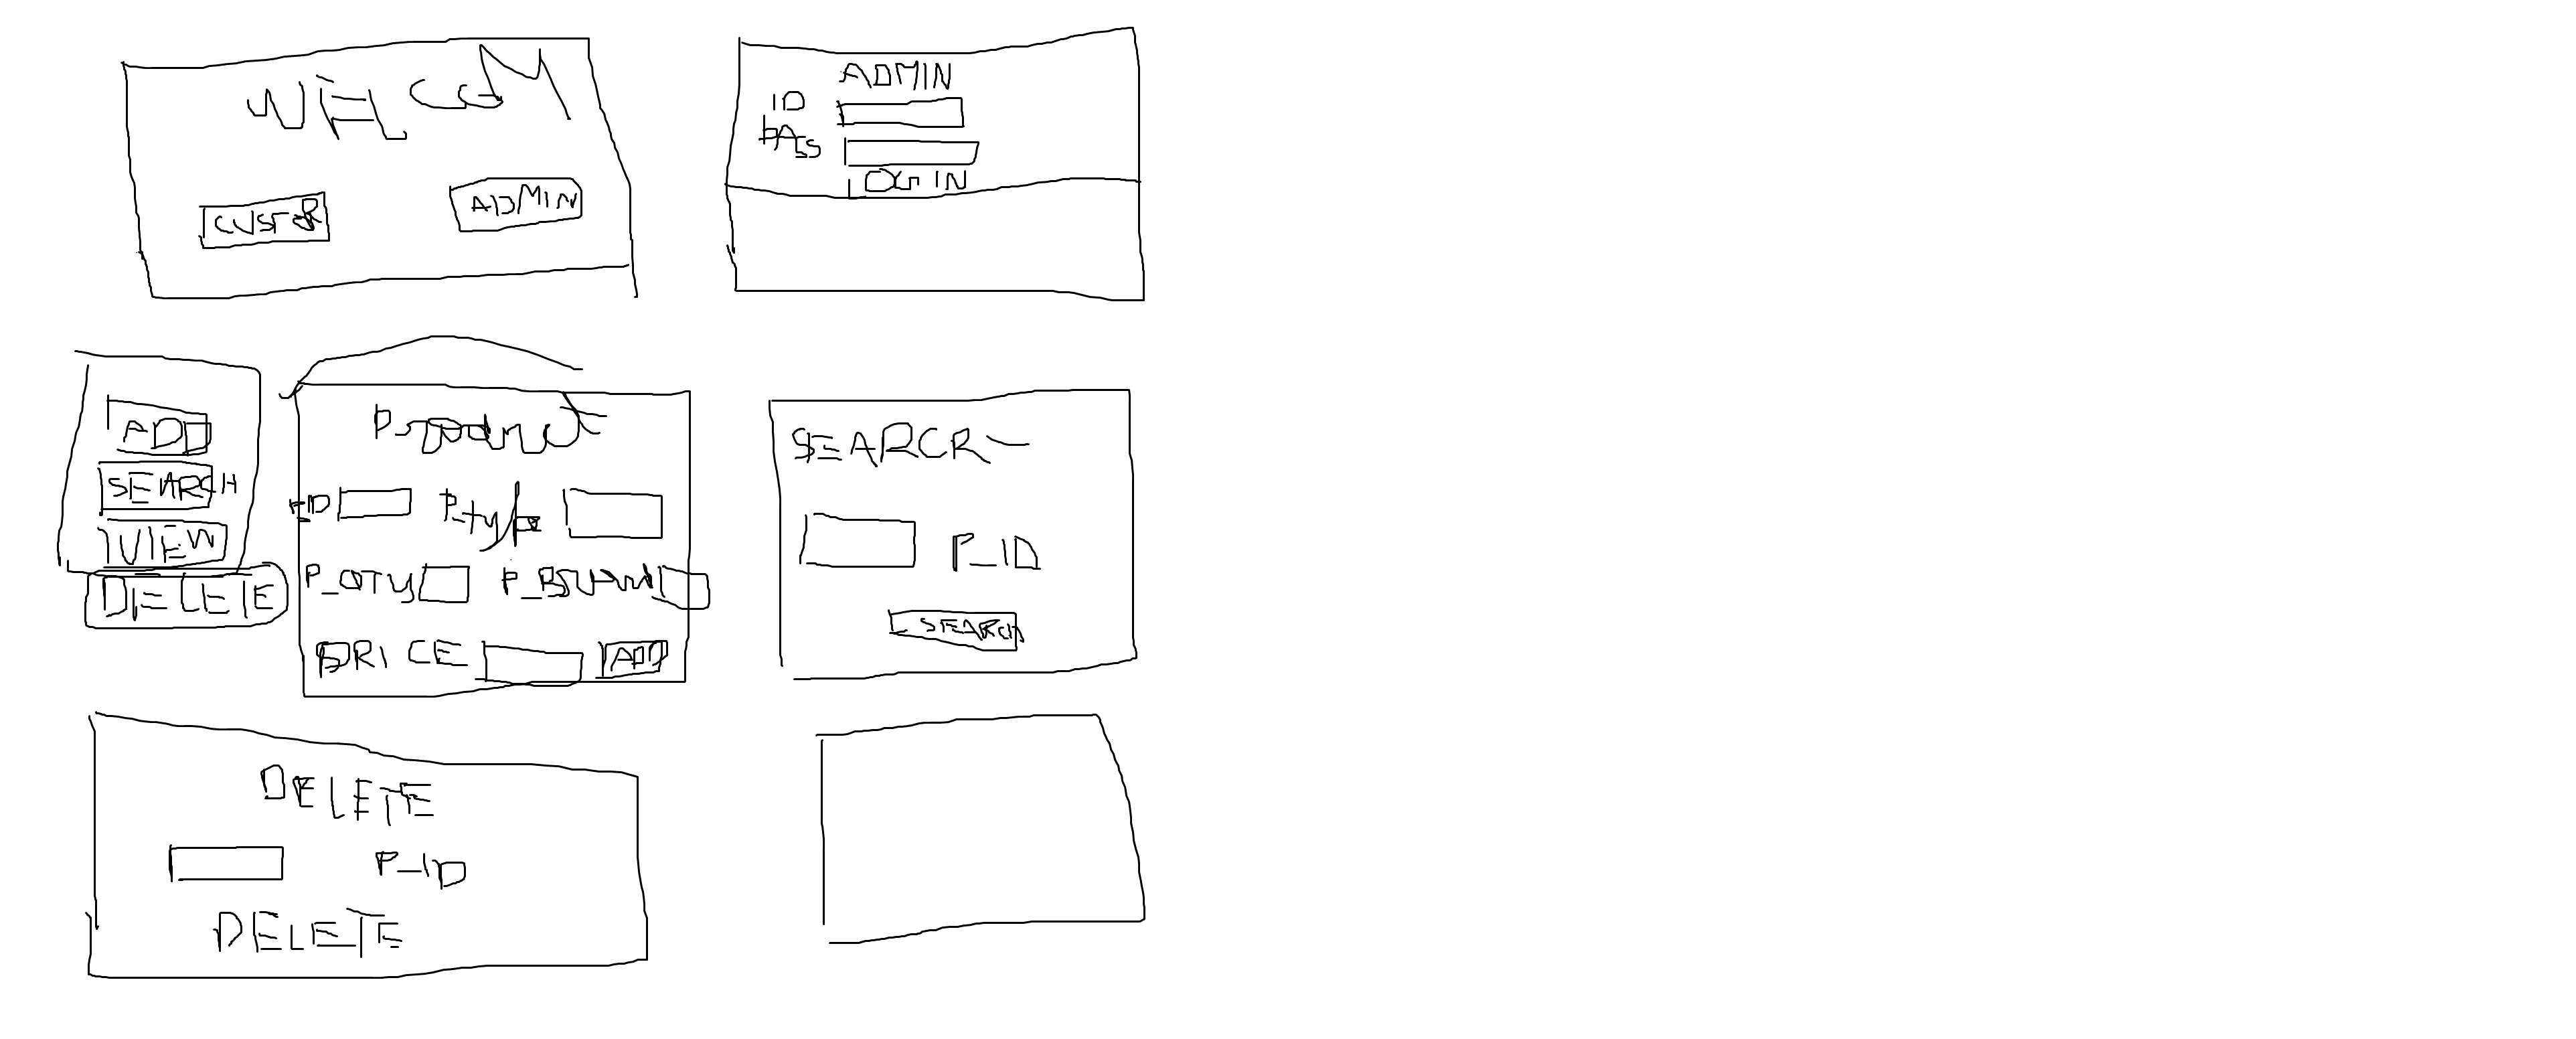 WELCOM
CUSTOR
ADMIN
ADMIN
ID
PASS
LOGIN
ADD
SEARCH
VIEW
DELETE
Product
P_type
P_QTY
PRICE
ADD
SEARCH
P_ID
SEARCH
DELETE
P_ID
DELETE